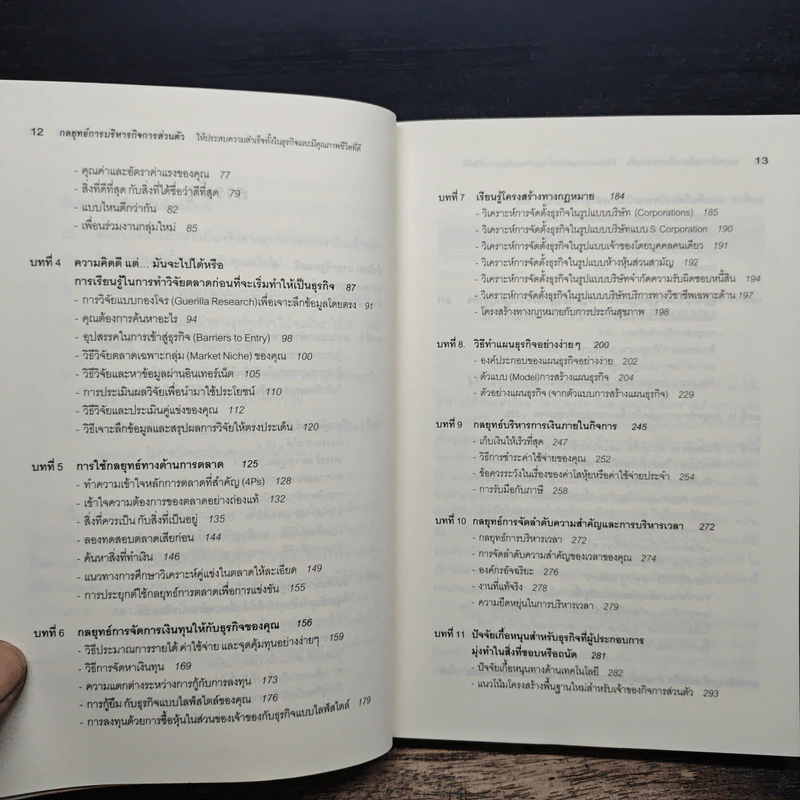 12 กลยุทธ์การบริหารกิจการส่วนตัว ให้ประสบความสำเร็จทั้งในธุรกิจและมีคุณภาพชีวิตที่ดี
- คุณค่าและอัตราค่าแรงของคุณ 77
- สิ่งที่ดีที่สุด กับสิ่งที่ได้ชื่อว่าดีที่สุด 79
- แบบไหนดีกว่ากัน 82
- เพื่อนร่วมงานกลุ่มใหม่ 85
บทที่ 4 ความคิดดี แต่... มันจะไปได้หรือ
การเรียนรู้ในการทำวิจัยตลาดก่อนที่จะเริ่มทำให้เป็นธุรกิจ 87
- การวิจัยแบบกองโจร (Guerilla Research)เพื่อเจาะลึกข้อมูลโดยตรง 91
- คุณต้องการค้นหาอะไร 94
- อุปสรรคในการเข้าสู่ธุรกิจ (Barriers to Entry) 98
- วิธีวิจัยตลาดเฉพาะกลุ่ม (Market Niche) ของคุณ 100
- วิธีวิจัยและหาข้อมูลผ่านอินเทอร์เน็ต 105
- การประเมินผลวิจัยเพื่อนำมาใช้ประโยชน์ 110
- วิธีวิจัยและประเมินคู่แข่งของคุณ 112
- วิธีเจาะลึกข้อมูลและสรุปผลการวิจัยให้ตรงประเด็น 120
บทที่ 5 การใช้กลยุทธ์ทางด้านการตลาด 125
- ทำความเข้าใจหลักการตลาดที่สำคัญ (4Ps) 128
- เข้าใจความต้องการของตลาดอย่างถ่องแท้ 132
- สิ่งที่ควรเป็น กับสิ่งที่เป็นอยู่ 135
- ลองทดสอบตลาดเสียก่อน 144
- ค้นหาสิ่งที่ทำเงิน 146
- แนวทางการศึกษาวิเคราะห์คู่แข่งในตลาดให้ละเอียด 149
- การประยุกต์ใช้กลยุทธ์การตลาดเพื่อการแข่งขัน 155
บทที่ 6 กลยุทธ์การจัดการเงินทุนให้กับธุรกิจของคุณ 156
- วิธีประมาณการรายได้ ค่าใช้จ่าย และจุดคุ้มทุนอย่างง่ายๆ 159
- วิธีการจัดหาเงินทุน 169
- ความแตกต่างระหว่างการกู้กับการลงทุน 173
- การกู้ยืม กับธุรกิจแบบไลฟ์สไตล์ของคุณ 176
- การลงทุนด้วยการซื้อหุ้นในส่วนของเจ้าของกับธุรกิจแบบไลฟ์สไตล์ 179
13
บทที่ 7 เรียนรู้โครงสร้างทางกฎหมาย 184
- วิเคราะห์การจัดตั้งธุรกิจในรูปแบบบริษัท (Corporations) 185
- วิเคราะห์การจัดตั้งธุรกิจในรูปแบบบริษัทแบบ S Corporation 190
- วิเคราะห์การจัดตั้งธุรกิจในรูปแบบเจ้าของโดยบุคคลคนเดียว 191
- วิเคราะห์การจัดตั้งธุรกิจในรูปแบบห้างหุ้นส่วนสามัญ 192
- วิเคราะห์การจัดตั้งธุรกิจในรูปแบบบริษัทจำกัดความรับผิดชอบหนี้สิน 194
- วิเคราะห์การจัดตั้งธุรกิจในรูปแบบบริษัทบริการทางวิชาชีพเฉพาะด้าน 197
- โครงสร้างทางกฎหมายกับการประกันสุขภาพ 198
บทที่ 8. วิธีทำแผนธุรกิจอย่างง่ายๆ 200
- องค์ประกอบของแผนธุรกิจอย่างง่าย 202
- ตัวแบบ (Model)การสร้างแผนธุรกิจ 204
- ตัวอย่างแผนธุรกิจ (จากตัวแบบการสร้างแผนธุรกิจ) 229
บทที่ 9 กลยุทธ์บริหารการเงินภายในกิจการ 245
- เก็บเงินให้เร็วที่สุด 247
- วิธีการชำระค่าใช้จ่ายของคุณ 252
- ข้อควรระวังในเรื่องของค่าโสหุ้ยหรือค่าใช้จ่ายประจำ 254
- การรับมือกับภาษี 258
บทที่ 10 กลยุทธ์การจัดลำดับความสำคัญและการบริหารเวลา 272
- กลยุทธ์การบริหารเวลา 272
- การจัดลำดับความสำคัญของเวลาของคุณ 274
- องค์กรอัจฉริยะ 276
- งานที่แท้จริง 278
- ความยืดหยุ่นในการบริหารเวลา 279
บทที่ 11 ปัจจัยเกื้อหนุนสำหรับธุรกิจที่ผู้ประกอบการ
มุ่งทำในสิ่งที่ชอบหรือถนัด 281
- ปัจจัยเกื้อหนุนทางด้านเทคโนโลยี 282
- แนวโน้มโครงสร้างพื้นฐานใหม่สำหรับเจ้าของกิจการส่วนตัว 293